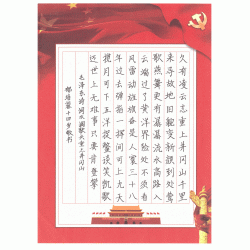 久有凌云志重上井冈山千里
来寻故地旧貌变新颜到处莺
歌燕舞更有潺潺流水高路入
云端过了黄洋界险处不须看
风雷动旌旗奋是人寰三十八
年过去弹指一挥间可上九天
揽月可下五洋捉鳖谈笑凯歌
还世上无难事只要肯登攀
毛泽东诗词水调歌头重上井冈山
十四岁敬书